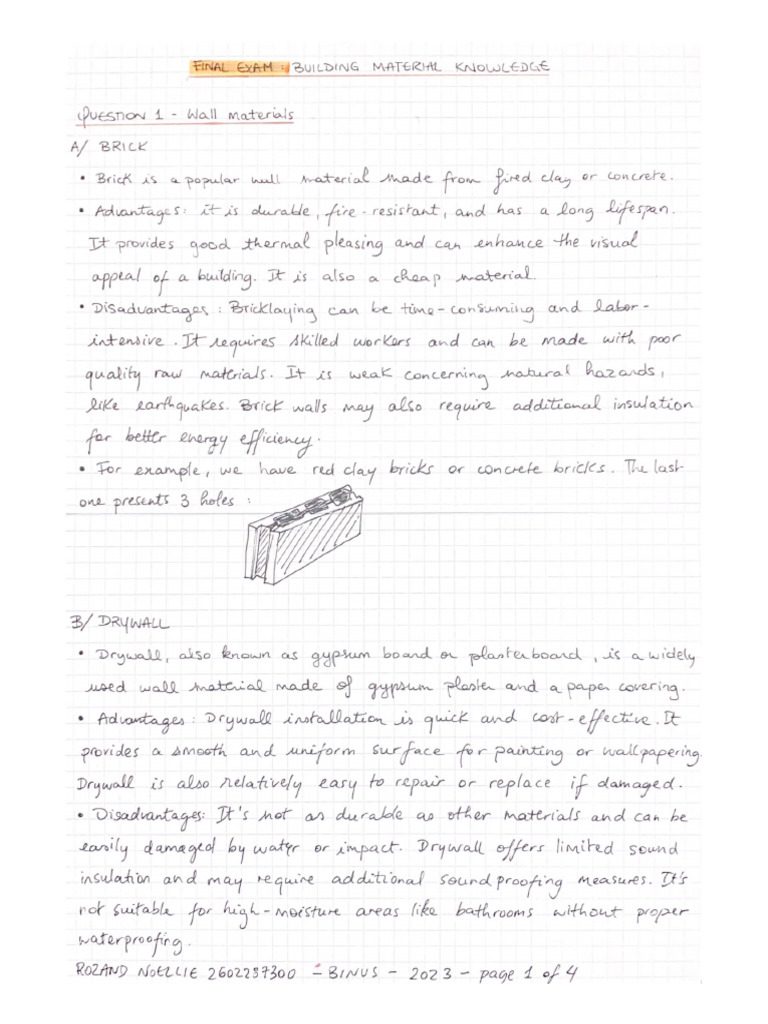 FINAL EXAM : BUILDING MATERIAL KNOWLEDGE
QUESTION 1 - Wall materials
A/ BRICK
• Brick is a popular wall material made from fired clay or concrete.
• Advantages: it is durable, fire-resistant, and has a long lifespan.
It provides good thermal pleasing and can enhance the visual
appeal of a building. It is also a cheap material.
• Disadvantages : Bricklaying can be time-consuming and labor-
intensive. It requires skilled workers and can be made with poor
quality raw materials. It is weak concerning natural hazards,
like earthquakes. Brick walls may also require additional insulation
for better energy efficiency.
• For example, we have red clay bricks or concrete bricks. The last
one presents 3 holes :
B/ DRYWALL
• Drywall, also known as gypsum board or plasterboard, is a widely
used wall material made of gypsum plaster and a paper covering.
• Advantages : Drywall installation is quick and cost-effective. It
provides a smooth and uniform surface for painting or wallpapering.
Drywall is also relatively easy to repair or replace if damaged.
• Disadvantages: It's not as durable as other materials and can be
easily damaged by water or impact. Drywall offers limited sound
insulation and may require additional soundproofing measures. It's
not suitable for high-moisture areas like bathrooms without proper
waterproofing.
ROZAND NOELLIE 2602237300 - BINUS - 2023 - page 1 of 4